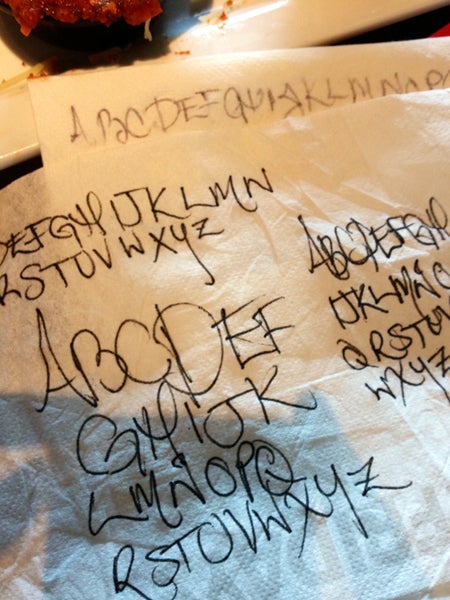 ABCDEFGHIJKLMNOP
DEFGHIJKLMN
RSTUVWXYZ
ABCDEFGH
IJKLMNO
QRSTUV
WXYZ
ABCDEF
GHIJK
LMNOPQ
RSTUVWXYZ